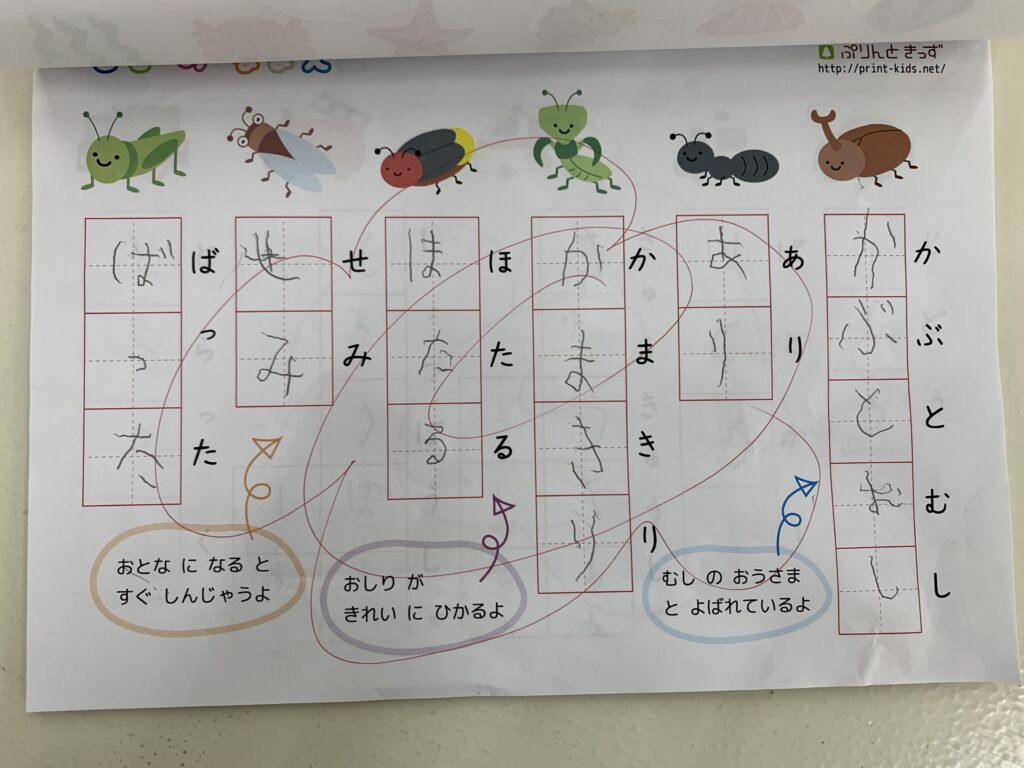 ぷりんと きっず
http://print-kids.net/
かぶとむし
かぶとむし
あり
あり
かまきり
かまきり
ほたる
ほたる
せみ
せみ
ばった
ばった
むし の おうさま
と よばれているよ
おしり が
きれい に ひかるよ
おとな に なる と
すぐ しんじゃうよ